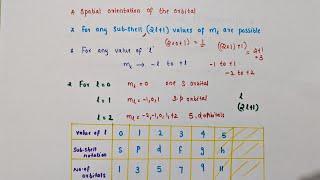 2 Spatial orientation of the orbital
2 For any Sub-shell, (2l+1) values of mₗ are possible
(2×0+1) = 1/2 (2(1)+1) = 2+1 = 3
3 For any value of l
mₗ → -l to +l -1 to +1
-2 to +2
2 For l=0 mₗ = 0 one S orbital
l=1 mₗ = -1,0,1 3 p orbital
l=2 mₗ = -2,-1,0,1,+2 5, d orbitals
l
(2l+1)
Value of l 0 1 2 3 4 5
Sub-shell notation S P d f g h
No. of orbitals 1 3 5 7 9 11